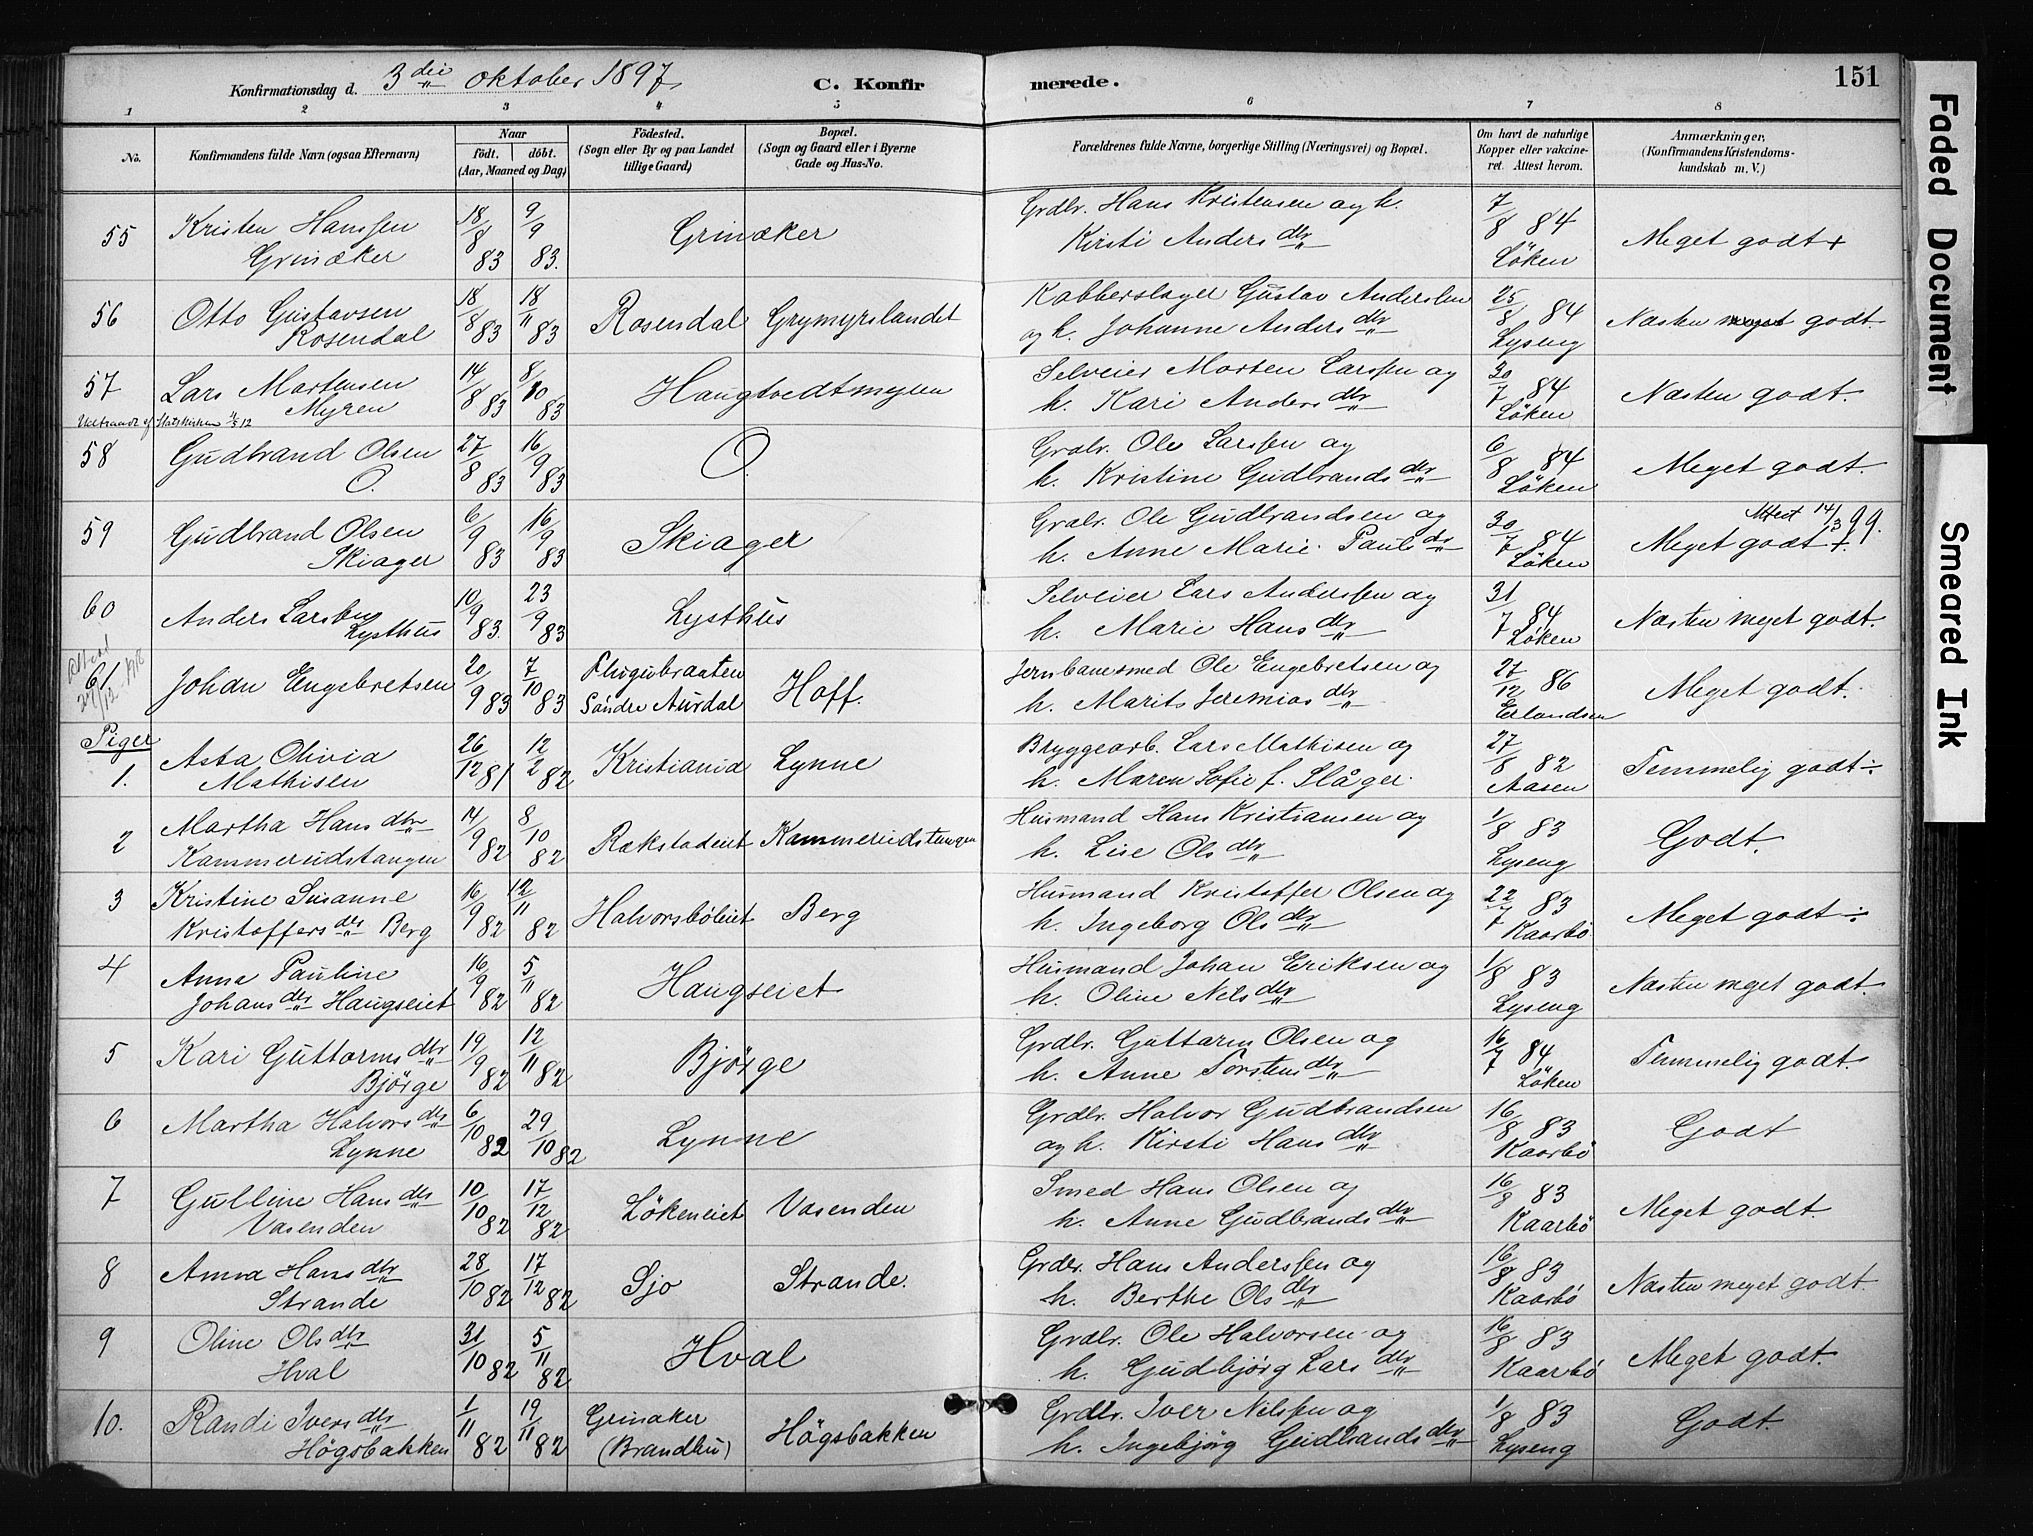 Konfirmationsdag d. 3die oktober 1897. C. Konfirmerede. 151
1 2 3 4 5 6 7 8
No. Konfirmandens fulde Navn (ogsaa Efternavn) Naar født. døbt. (Aar, Maaned og Dag) Fødested. (Sogn eller By og paa Landet tillige Gaard) Bopæl. (Sogn og Gaard eller i Byerne Gade og Hus-No. Forældrenes fulde Navne, borgerlige Stilling (Næringsvei) og Bopæl. Om havt de naturlige Kopper eller vakcineret. Attest herom. Anmærkninger. (Konfirmandens Kristendomskundskab m. V.)
55 Kristen Hanssen Grinaker 18/8 83 9/9 83. Grinaker Grdbr. Hans Kristensen og h. Kirsti Andersdtr 7/8 84 Löken Meget godt +
56 Otto Gustavsen Rosendal 18/8 83 18/11 83 Rosendal Grymyrslandet Kobberslager Gustav Anderssen og h. Johanne Andersdtr 25/8 84 Lyseng Næsten godt.
57 Lars Martensen Myren 14/8 83 8/10 83 Haugtvedtmyren Selveier Morten Larssen og h. Kari Andersdtr 30/7 84 Löken Næsten godt.
Udtraadt af Statskirken 4/5 12
58 Gudbrand Olsen O. 27/8 83 16/9 83 O. Grdbr. Ole Larssen og h. Kristine Gudbrandsdtr 6/8 84 Löken Meget godt.
59 Gudbrand Olsen Skiager 6/9 83 16/9 83 Skiager Grdbr. Ole Gudbrandsen og h. Anne Marie Paulsdtr 30/7 84 Löken Attest 14/3 99. Meget godt +.
60 Anders Larssen Lysthus 10/9 83. 23/9 83 Lysthus Selveier Lars Anderssen og h. Marie Hansdtr 31/7 84 Löken Næsten meget godt.
61 Johan Engebretsen 20/9 83 7/10 83 Söndre Aurdal Hoff. Jernbanesmed Ole Engebretsen og h. Marits Jeremiasdtr 27/12 86 Erlandsen Meget godt.
Piger
1. Asta Olivia Mathisen 26/12 81 12/2 82 Kristiania Lynne Bryggearb. Lars Mathisen og h. Maren Sofie f. Slåger. 27/8 82 Aasen Temmelig godt ÷
2 Martha Hansdtr Kammerudstangen 14/9 82 8/10 82 Rækstadeiet Kammerudstangen Husmand Hans Kristiansen og h. Lise Olsdtr 1/8 83 Lyseng Godt.
3 Kristine Susanne Kristoffersdtr Berg 16/9 82 12/11 82 Halvorsböleiet Berg Husmand Kristoffer Olsen og h. Ingeborg Olsdtr 22/7 83 Kaarbö Meget godt ÷
4 Anna Pauline Johansdtr Haugseiet 16/9 82 5/11 82 Haugseiet Husmand Johan Eriksen og h. Oline Nelsdtr 1/8 83 Lyseng Næsten meget godt.
5 Kari Guttormsdtr Björge 19/9 82 12/11 82 Björge Grdbr. Guttorm Olsen og h. Anne Torstensdtr 16/7 84 Löken Temmelig godt.
6 Martha Halvorsdtr Lynne 6/10 82 29/10 82 Lynne Grdbr. Halvor Gudbrandsen og h. Kirsti Hansdtr 16/8 83 Kaarbö Godt
7 Gulline Hansdtr Vasenden 10/10 82 17/12 82 Lökeneiet Vasenden Smed Hans Olsen og h. Anne Gudbrandsdtr 16/8 83 Kaarbö Meget godt.
8 Anna Hansdtr Strande 28/10 82 17/12 82 Sjo Strande. Grdbr. Hans Anderssen og h. Berthe Olsdtr 16/8 83 Kaarbö Næsten meget godt.
9 Oline Olsdtr Hval 31/10 82 5/11 82 Hval Grdbr. Ole Halvorsen og h. Gudbjörg Larsdtr 16/8 83 Kaarbö Meget godt.
10. Randi Iversdtr Högsbakken 1/11 82 19/11 82 Grinaker (Brandbu) Högsbakken Grdbr. Iver Nilssen og h. Ingebjörg Gudbrandsdtr 1/8 83 Lyseng Godt.
Faded Document
Smeared Ink